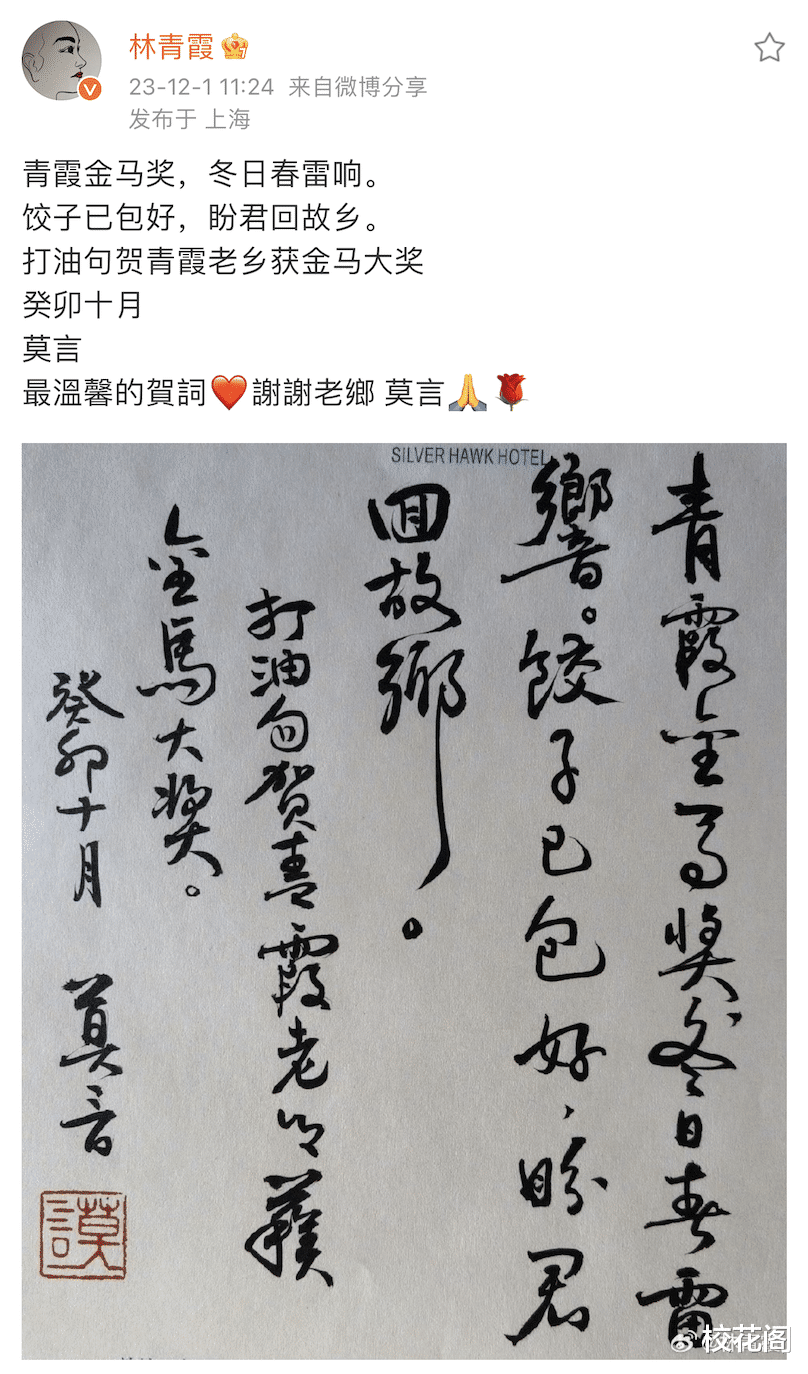 林青霞
23-12-1 11:24 来自微博分享
发布于 上海
青霞金马奖，冬日春雷响。
饺子已包好，盼君回故乡。
打油句贺青霞老乡获金马大奖
癸卯十月
莫言
最溫馨的賀詞❤️謝謝老鄉 莫言🙏🌹
SILVER HAWK HOTEL
青霞金马獎冬日春雷
響。餃子已包好，盼君
回故鄉。
打油句賀青霞老乡獲
金馬大獎。
癸卯十月 莫言
謨
校花阁